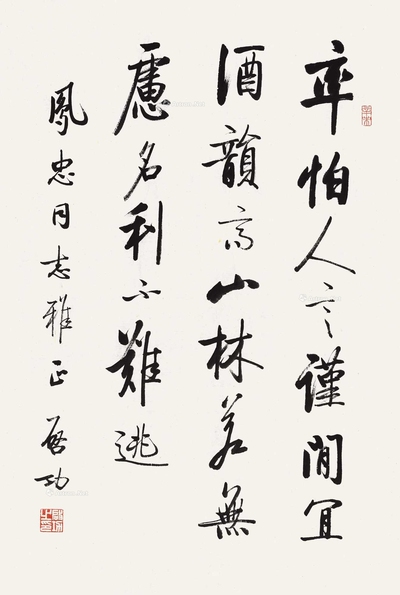 率怕人言謹閒宜
酒韻高山林若無
慮名利不難逃
鳳忠同志雅正 啓功